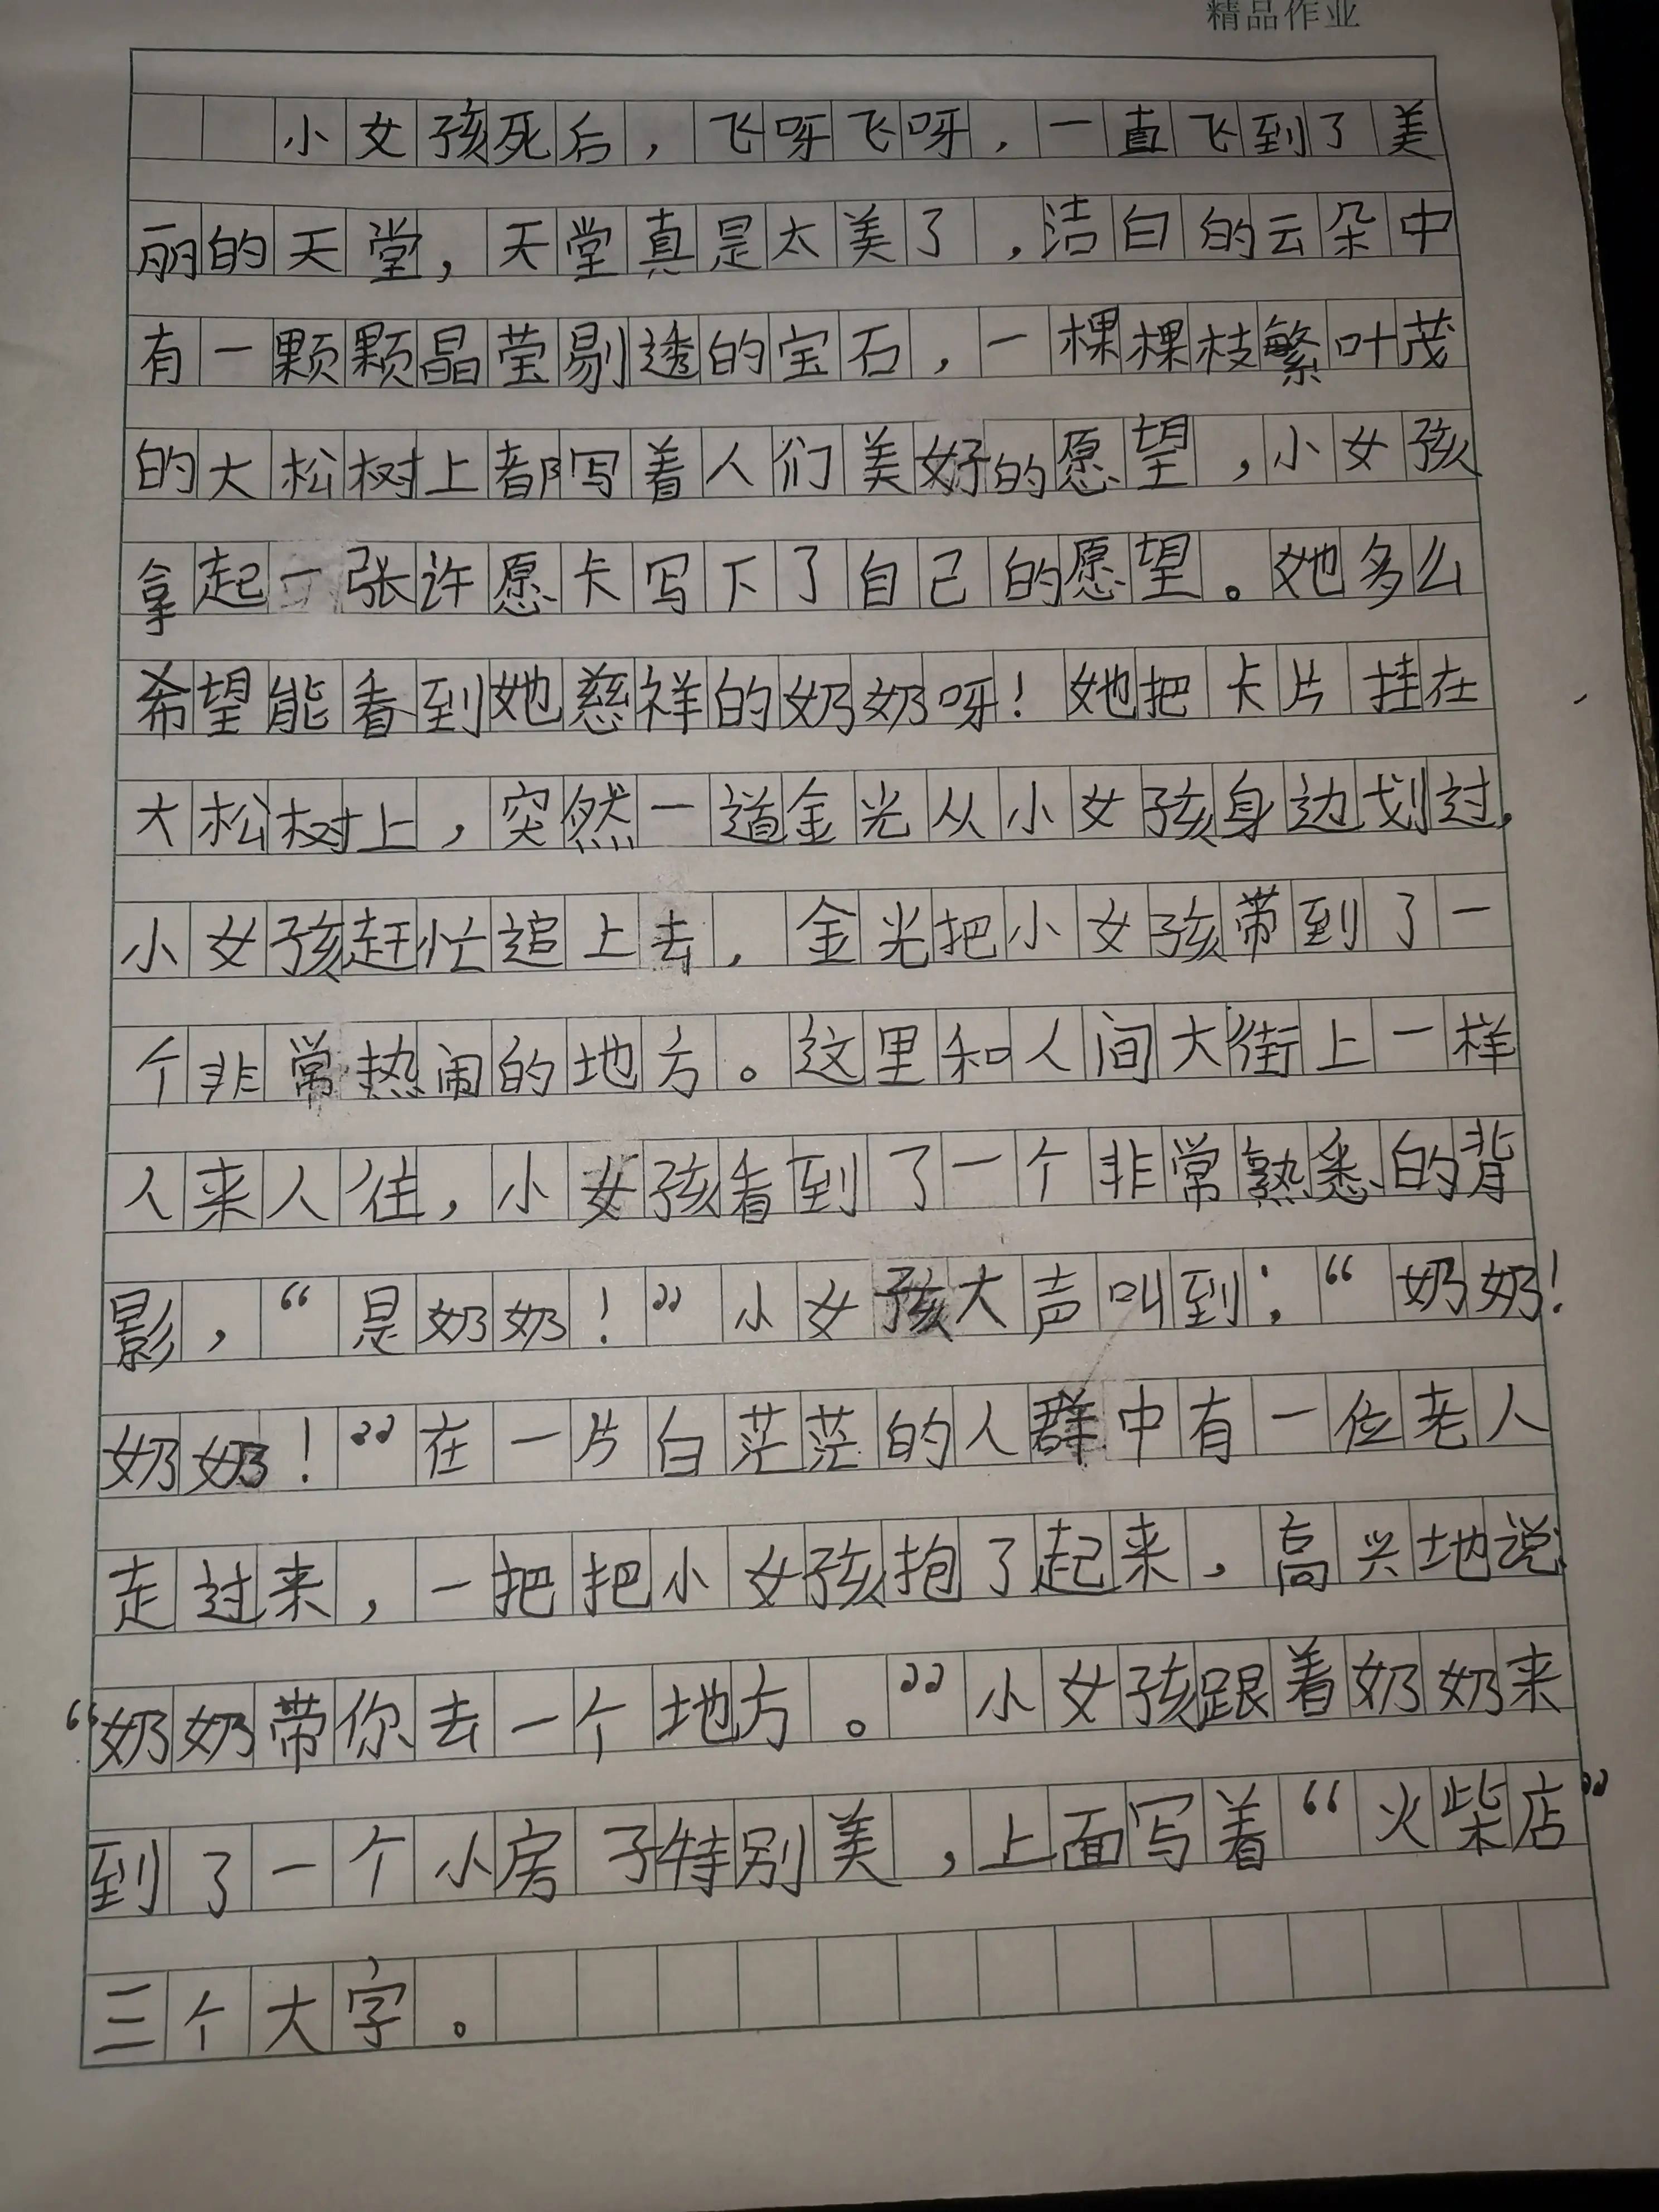 精品作业
小女孩死后，飞呀飞呀，一直飞到了美
丽的天堂，天堂真是太美了，洁白的云朵中
有一颗颗晶莹剔透的宝石，一棵棵枝繁叶茂
的大松树上都写着人们美好的愿望，小女孩
拿起一张许愿卡写下了自己的愿望。她多么
希望能看到她慈祥的奶奶呀！她把卡片挂在
大松树上，突然一道金光从小女孩身边划过，
小女孩赶忙追上去，金光把小女孩带到了一
个非常热闹的地方。这里和人间大街上一样
人来人往，小女孩看到了一个非常熟悉的背
影，“是奶奶！”小女孩大声叫到：“奶奶！
奶奶！”在一片白茫茫的人群中有一位老人
走过来，一把把小女孩抱了起来，高兴地说：
“奶奶带你去一个地方。”小女孩跟着奶奶来
到了一个小房子特别美，上面写着“火柴店”
三个大字。